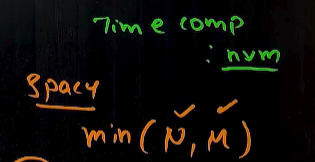 Time comp
: n*m
Space
min(N, M)